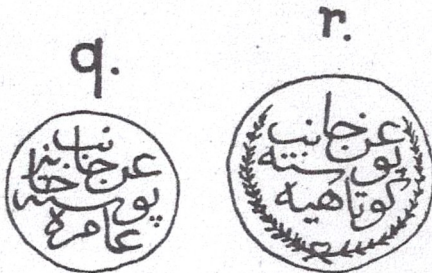 q.
r.
عن جانب
پوسته خانه
عامره
عن جانب
پوسته
كوتاهيه